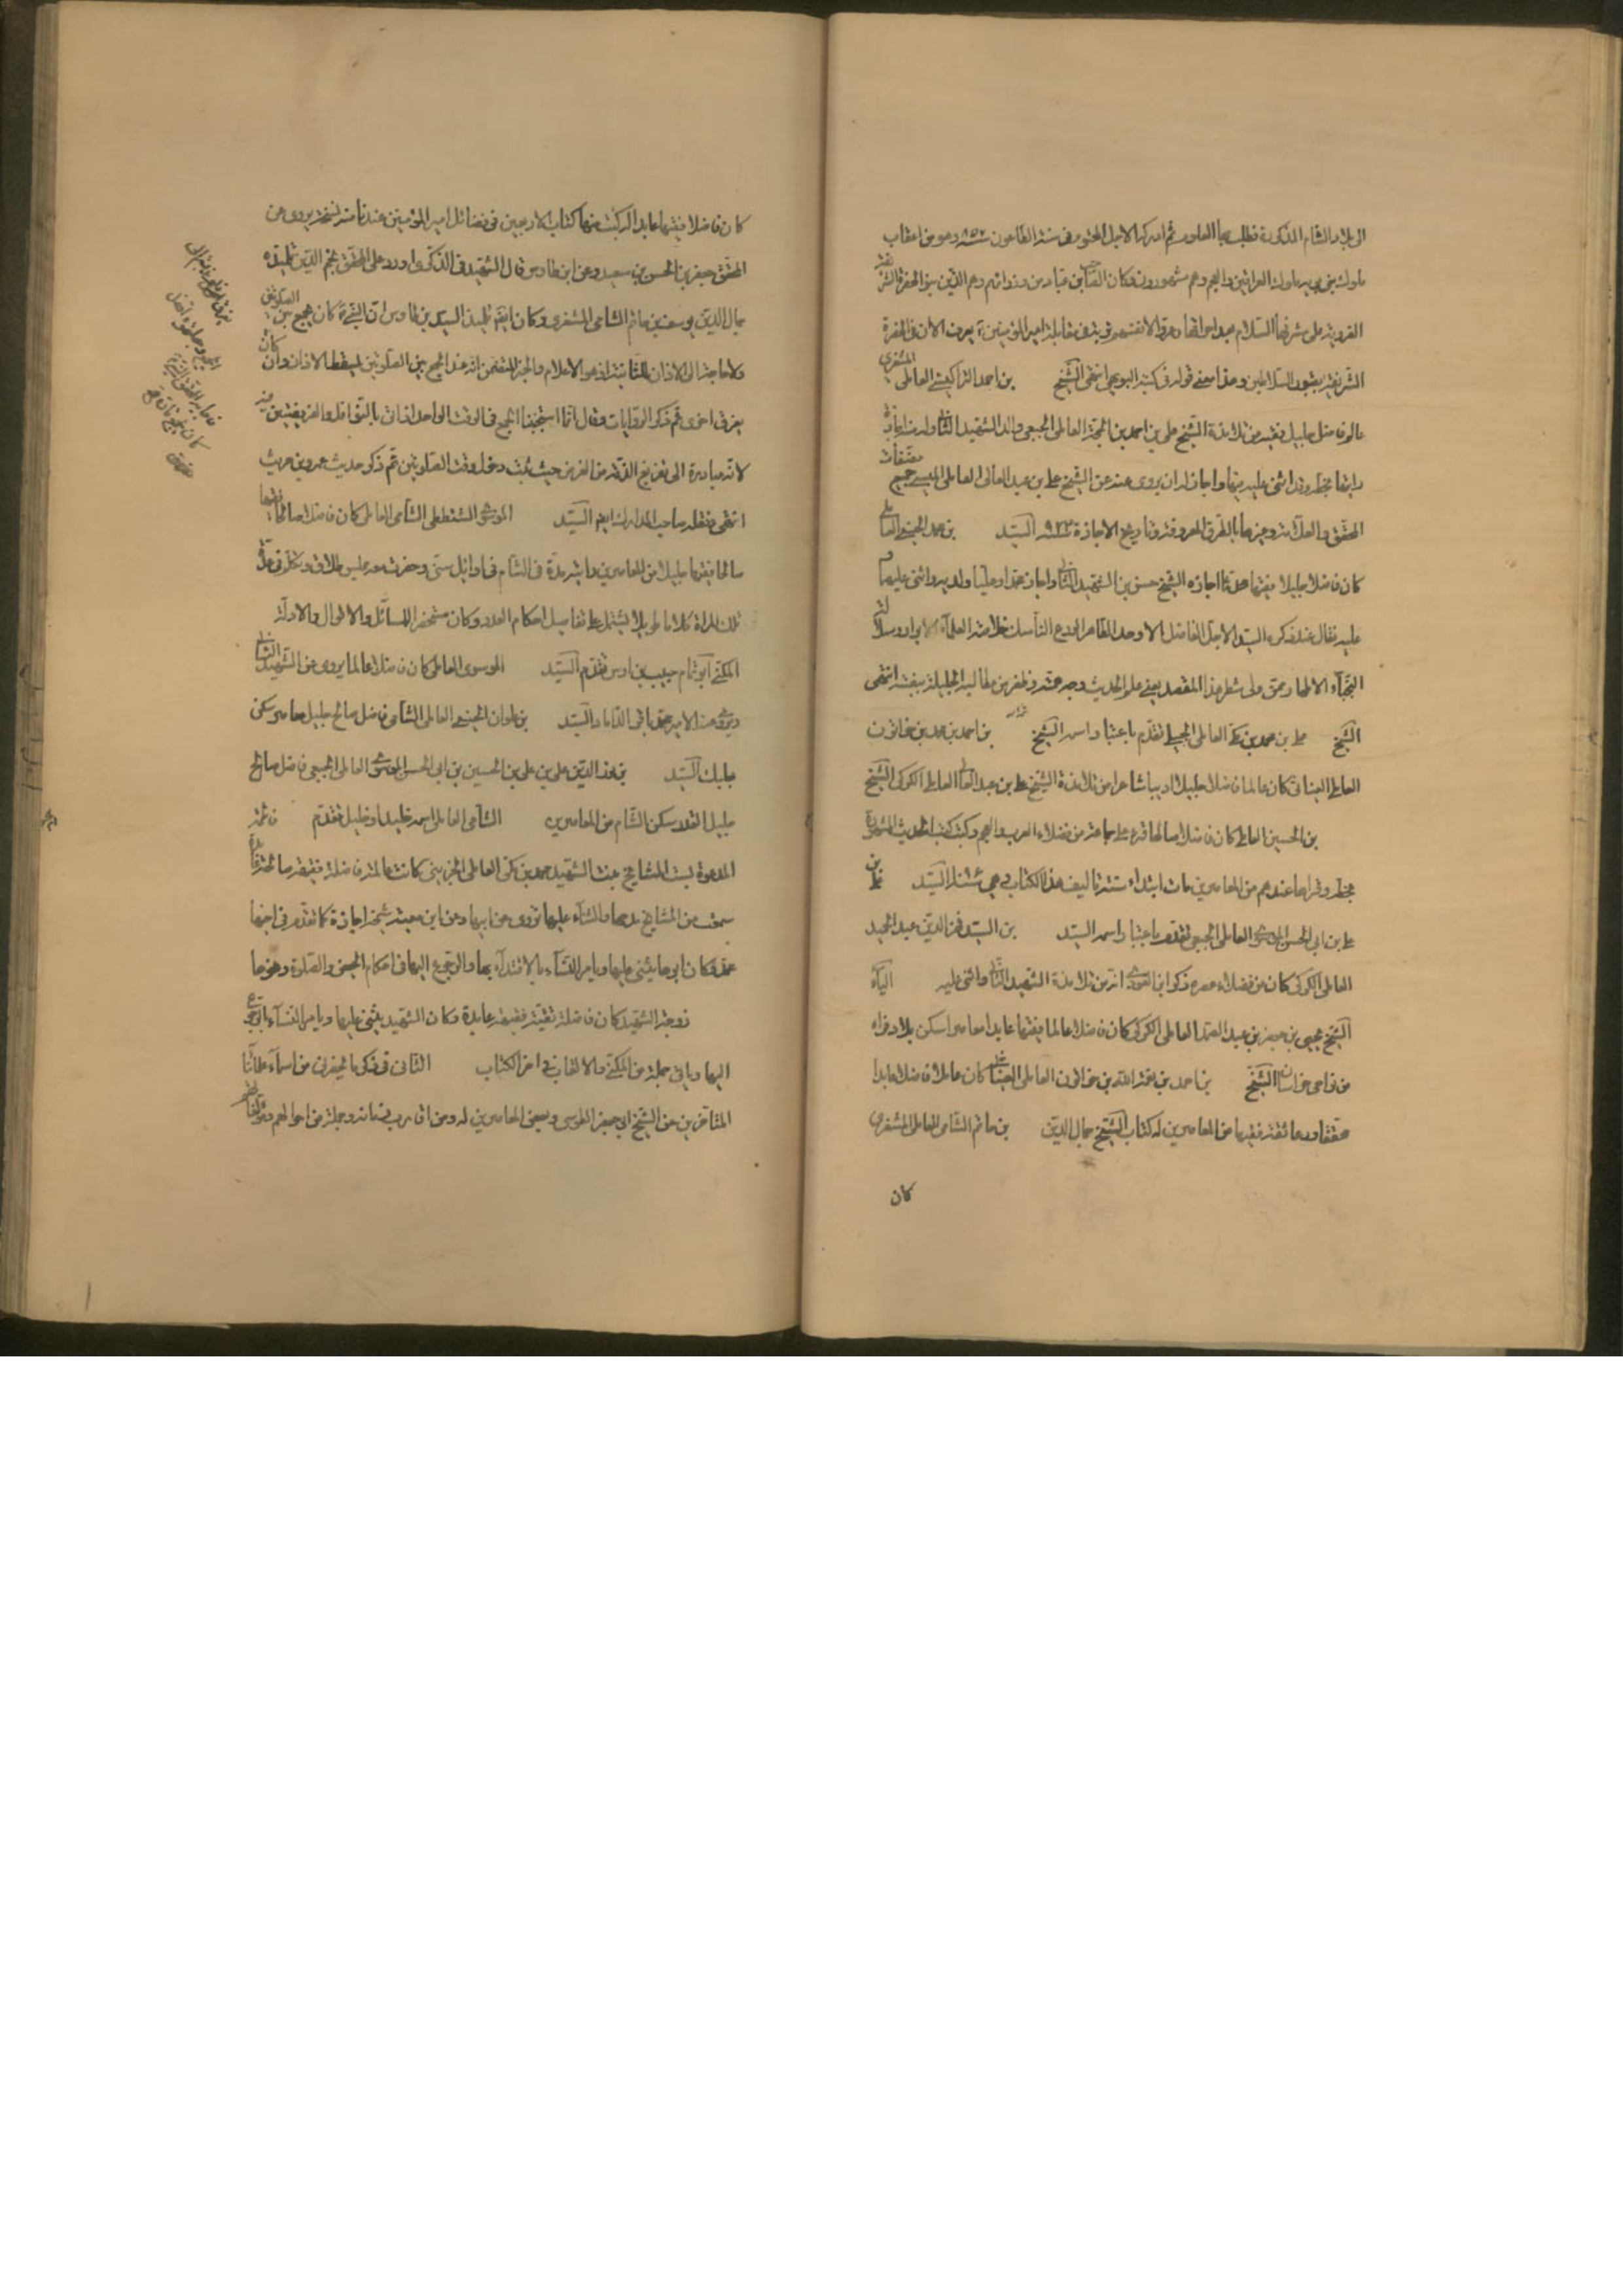 الى بلاد الشام المذكورة فطلب بها العلوم ثم ادركه الاجل المحتوم في سنة الطاعون سنة ٨٥٢ وهو من اعقاب
ملوك بني بويه ملوك العراقين والعجم وهم مشهورون وكان الصاحب بن عباد من وزرائهم وهم الذين بنوا الحضرة الشريفة
الغروية على مشرفها السلام بعد احراقها وعمروا لانفسهم تربة في مقابلة امير المؤمنين ع يعرف الان في الحضرة
الشريفة بقبور السلاطين وهذا معنى قوله في كتبه البويهي انتهى الشيخ بن احمد التراكيشي العاملي المشغري
عالم فاضل جليل فقيه من تلامذة الشيخ علي بن احمد بن الحجة العاملي الجبعي والد الشهيد الثاني وله منه اجازة
رايتها بخطه وقد اثنى عليه فيها واجاز له ان يروي عنه عن الشيخ علي بن عبد العالي العاملي الميسي جميع مصنفات
المحقق والعلامة وغيرهما بالطرق المعروفة وتاريخ الاجازة سنة ٩٣٢ السيد بن محمد الحسيني العاملي
كان فاضلا جليلا فقيها محدثا اجازه الشيخ حسن بن الشهيد الثاني واجاز محمدا وعليا ولديه واثنى عليهما
عليه فقال عند ذكره السيد الاجل الفاضل الاوحد الطاهر الورع الناسك خلاصة العلماء الابرار وسلالة
النجباء الاطهار ممن ولى شطر هذا المقصد يعني علم الحديث وجه همته وظفر من مطالبه الجليلة ببغيته انتهى
الشيخ علي بن محمد بن مكي العاملي الجبيلي تقدم باعتبار اسمه الشيخ بن احمد بن محمد بن خاتون
العاملي العيناثي كان عالما فاضلا جليلا اديبا شاعرا من تلامذة الشيخ علي بن عبد العالي العاملي الكركي الشيخ
بن الحسين العاملي كان فاضلا صالحا قرء على جماعة من فضلاء العرب والعجم وكتب كتب الحديث المشهورة
بخطه وقراها عندهم من المعاصرين مات ابتداء سنة تاليف هذا الكتاب وهي سنة السيد علي بن
علي بن ابي الحسن الموسوي العاملي الجبعي تقدم باعتبار اسمه السيد بن السيد فخر الدين عبد الحميد
العاملي الكركي كان من فضلاء عصره ذكر ابن العودي انه من تلامذة الشهيد الثاني واثنى عليه الياء
الشيخ يحيى بن جعفر بن عبد الصمد العاملي الكركي كان فاضلا عالما فقيها عابدا معاصرا سكن بلاد فراه
من نواحي خراسان الشيخ بن احمد بن نعمة الله بن خاتون العاملي العيناثي كان عاملا فاضلا عابدا
محققا ورعا ثقة فقيها من المعاصرين له كتاب الشيخ جمال الدين بن حاتم الشامي العاملي المشغري
كان
كان فاضلا فقيها عابدا له كتب منها كتاب الاربعين في فضائل امير المؤمنين عندنا منه نسخة يروي عن
المحقق جعفر بن الحسن بن سعيد وعن ابن طاوس قال الشهيد في الذكرى اورد على المحقق نجم الدين تلميذه
جمال الدين يوسف بن حاتم الشامي المشغري وكان ايضا تلميذ السيد بن طاوس ان النبي ص كان يجمع بين الصلوتين
فلا حاجة الى الاذان للثانية اذ هو الاعلام والخبر المتضمن انه عند الجمع بين الصلوتين يسقط الاذان وان كان
يفرق اخرى ثم ذكر الروايات وقال انما استحببنا الجمع في الوقت الواحد اذا اتى بالنوافل والفريضتين فيه
لانه مبادرة الى تفريغ الذمة من الفرض حيث ثبت دخل وقت الصلوتين ثم ذكر حديث عمرو بن حريث
انتهى ونقله صاحب المدارك ايضا السيد الموسوي الشنعطي الشامي العاملي كان فاضلا عالما فقيها
صالحا فقيها جليلا من المعاصرين رايته مدة في الشام في اوائل سني وحضرت معه مجلس طلاق وتكلم في عدة
تلك المراة كلاما طويلا يشتمل على تفاصيل احكام العدد وكان مستحضر المسائل والاقوال والادلة
المكنى ابو تمام حبيب بن اوس تقدم السيد الموسوي العاملي كان فاضلا عالما يروي عن الشهيد الثاني
ويروي عنه الامير محمد باقر الداماد السيد بن علوان الحسيني العاملي الشامي فاضل صالح جليل معاصر سكن
بعلبك السيد بن نور الدين علي بن علي بن الحسين بن ابي الحسن الموسوي العاملي الجبعي فاضل صالح
جليل القدر سكن الشام من المعاصرين الشامي العاملي اسمه خليد او خليل تقدم فاطمة
المدعوة بست المشايخ بنت الشهيد محمد بن مكي العاملي الجزيني كانت عالمة فاضلة فقيهة صالحة
سمعت من المشايخ مدحها والثناء عليها تروي عن ابيها وعن ابن معية شيخه اجازة كما تقدم في اخيها
محمد وكان ابوها يثني عليها ويامر النساء بالاقتداء بها والرجوع اليها في احكام الحيض والصلوة ونحوها
زوجة الشهيد كان فاضلة تقية فقيهة عابدة وكان الشهيد يثني عليها ويامر النساء بالرجوع
اليها وياتي جملة من الكنى والالقاب في اخر الكتاب الثاني في ذكر ما يحضرني من اسماء علمائنا
المتاخرين عن الشيخ ابي جعفر الطوسي وبعض المعاصرين له ومن قارب زمانه وجملة من احوالهم ومؤلفاتهم